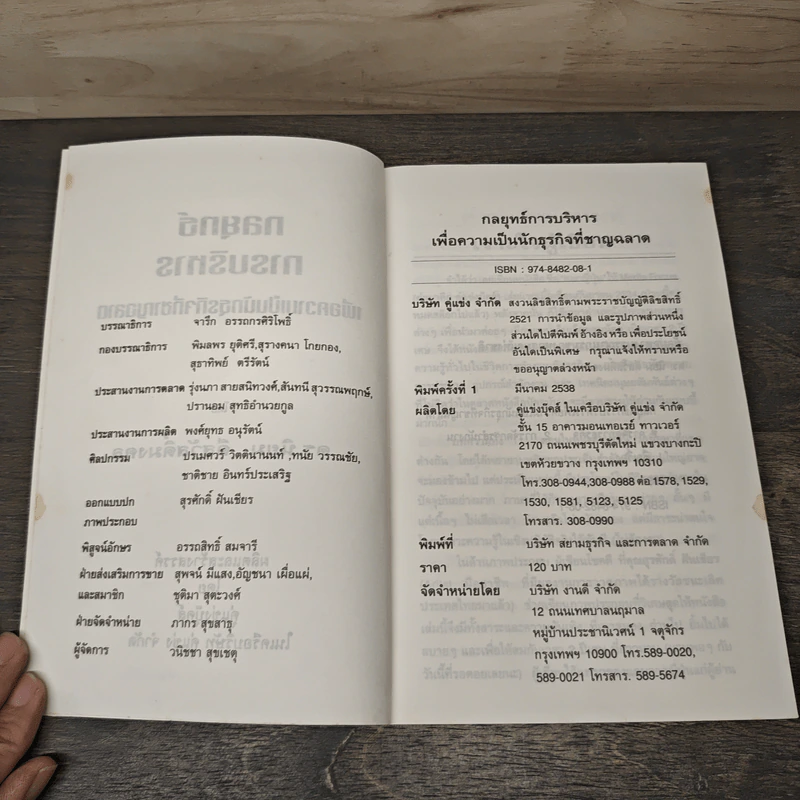 บรรณาธิการ จารึก อรรถกรศิริโพธิ์
กองบรรณาธิการ พิมลพร ยุติศรี,สุรางคนา โกยกอง,
สุธาทิพย์ ตรีรัตน์
ประสานงานการตลาด รุ่งนภา สายสนิทวงศ์,สันทนี สุวรรณพฤกษ์,
ปรานอม สุทธิอำนวยกูล
ประสานงานการผลิต พงศ์ยุทธ อนุรัตน์
ศิลปกรรม ปรเมศวร์ วิตตินานนท์ ,ทนัย วรรณชัย,
ชาติชาย อินทร์ประเสริฐ
ออกแบบปก สุรศักดิ์ ฝันเชียร
ภาพประกอบ
พิสูจน์อักษร อรรถสิทธิ์ สมจารี
ฝ่ายส่งเสริมการขาย สุพจน์ มีแสง,อัญชนา เผื่อแผ่,
และสมาชิก ชุติมา สุตะวงศ์
ฝ่ายจัดจำหน่าย ภากร สุขสาธุ
ผู้จัดการ วนิชชา สุขเชตุ
กลยุทธ์การบริหาร
เพื่อความเป็นนักธุรกิจที่ชาญฉลาด
ISBN : 974-8482-08-1
บริษัท คู่แข่ง จำกัด สงวนลิขสิทธิ์ตามพระราชบัญญัติลิขสิทธิ์
2521 การนำข้อมูล และรูปภาพส่วนหนึ่ง
ส่วนใดไปตีพิมพ์ อ้างอิง หรือ เพื่อประโยชน์
อันใดเป็นพิเศษ กรุณาแจ้งให้ทราบหรือ
ขออนุญาตล่วงหน้า
พิมพ์ครั้งที่ 1 มีนาคม 2538
ผลิตโดย คู่แข่งบุ๊คส์ ในเครือบริษัท คู่แข่ง จำกัด
ชั้น 15 อาคารมอนเทอเรย์ ทาวเวอร์
2170 ถนนเพชรบุรีตัดใหม่ แขวงบางกะปิ
เขตห้วยขวาง กรุงเทพฯ 10310
โทร.308-0944,308-0988 ต่อ 1578, 1529,
1530, 1581, 5123, 5125
โทรสาร. 308-0990
พิมพ์ที่ บริษัท สยามธุรกิจ และการตลาด จำกัด
ราคา 120 บาท
จัดจำหน่ายโดย บริษัท งานดี จำกัด
12 ถนนเทศบาลนฤมาล
หมู่บ้านประชานิเวศน์ 1 จตุจักร
กรุงเทพฯ 10900 โทร.589-0020,
589-0021 โทรสาร. 589-5674